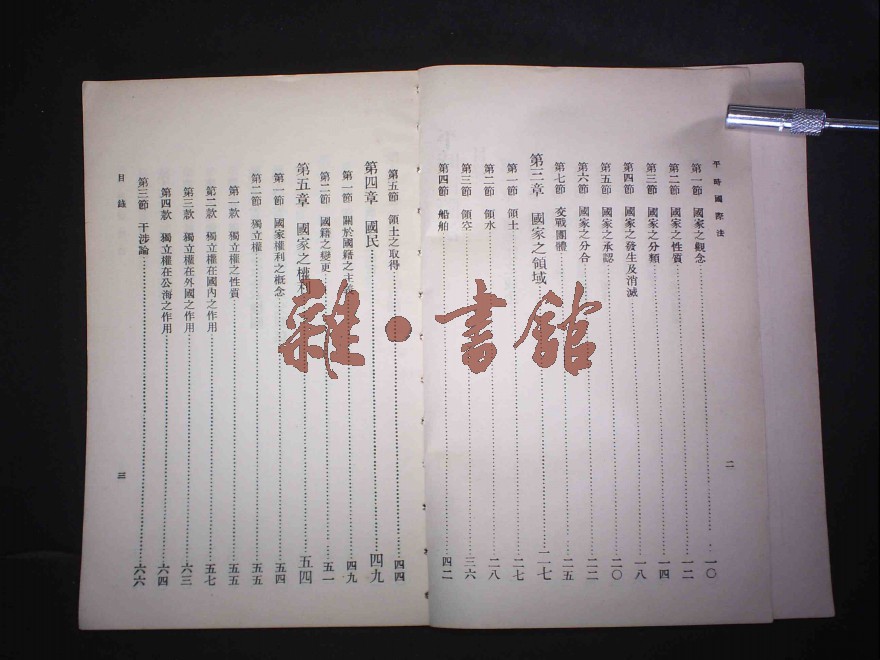 平時國際法
第一節 國家之觀念……一〇
第二節 國家之性質……一二
第三節 國家之分類……一四
第四節 國家之發生及消滅……一八
第五節 國家之承認……二〇
第六節 國家之分合……二二
第七節 交戰團體……二五
第三章 國家之領域……二七
第一節 領土……二七
第二節 領水……二八
第三節 領空……三六
第四節 船舶……四二
二
第五節 領土之取得……四四
第四章 國民……四九
第一節 關於國籍之主……四九
第二節 國籍之變更……五一
第五章 國家之權利……五四
第一節 國家權利之概念……五四
第二節 獨立權……五五
第一款 獨立權之性質……五五
第二款 獨立權在國內之作用……五七
第三款 獨立權在外國之作用……六三
第四款 獨立權在公海之作用……六四
第三節 干涉論……六六
目錄
三
雜·書館